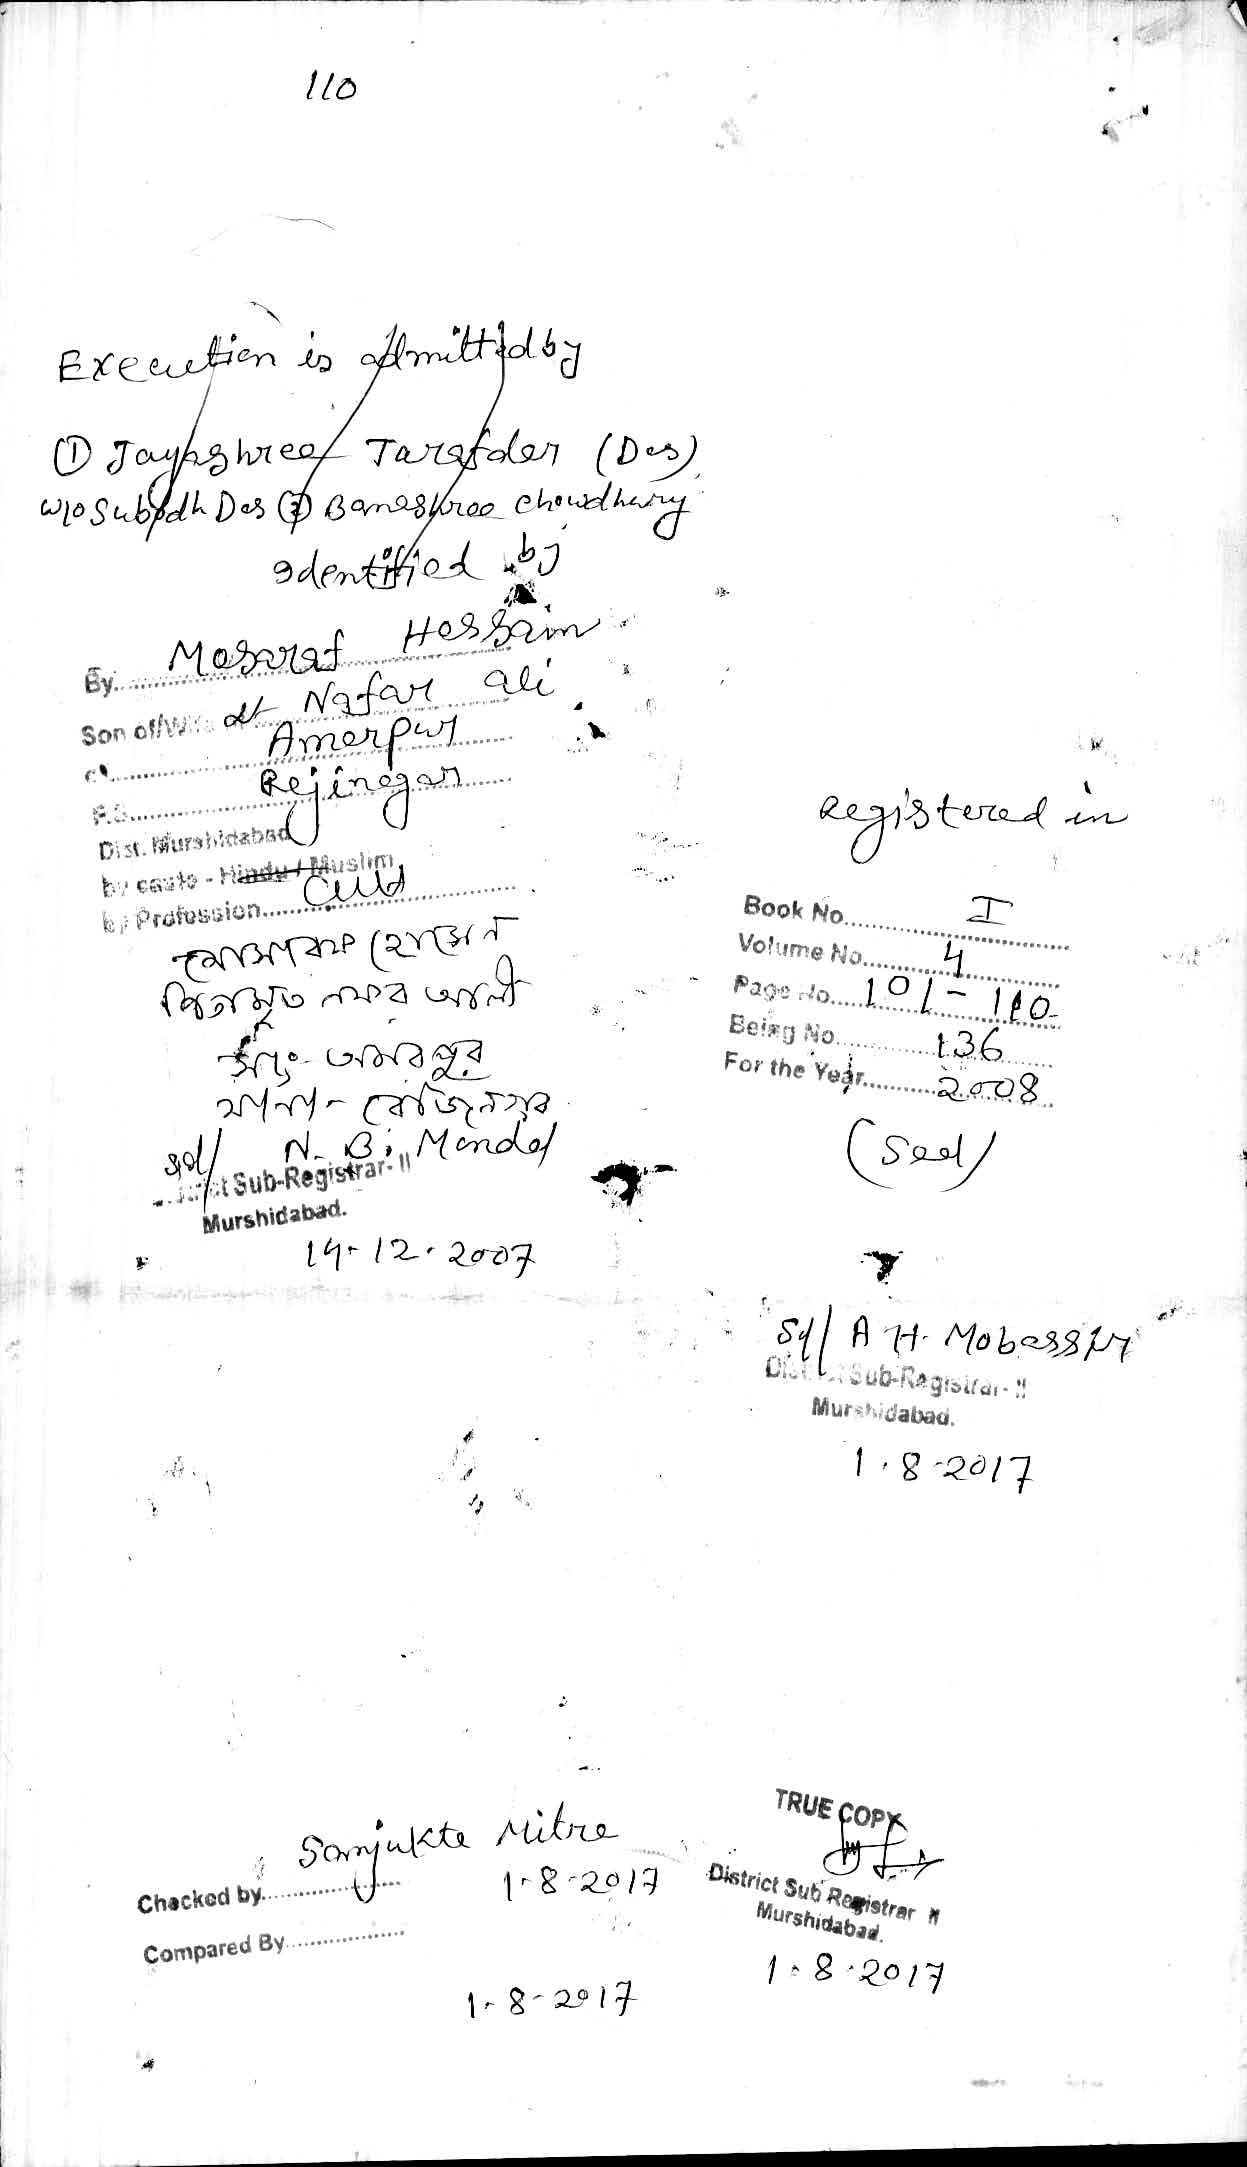 110
Execution is admitted by
① Jayashree Tarafder (Das)
w/o Subodh Das ② Banashree Chowdhury
Identified by
By. Mosaraf Hossain
Son of/Wife Nafar Ali
of Amarpur
P.S. Rejinagar
Dist. Murshidabad
by caste - Hindu / Muslim
by Profession. Cult
মোসারফ হোসেন
পিতা মৃত নফর আলী
সাং- অমরপুর
থানা- রেজিনগর
sd/ N. B. Mondal
District Sub-Registrar- II
Murshidabad.
14-12-2007
Registered in
Book No. I
Volume No. 4
Page No. 101-110
Being No. 136
For the Year. 2008
(Seal)
Sd/ A H. Mobassir
District Sub-Registrar- II
Murshidabad.
1.8-2017
Sanjukta Mitra
Checked by 1-8-2017
Compared By
1-8-2017
TRUE COPY
District Sub Registrar II
Murshidabad.
1-8-2017